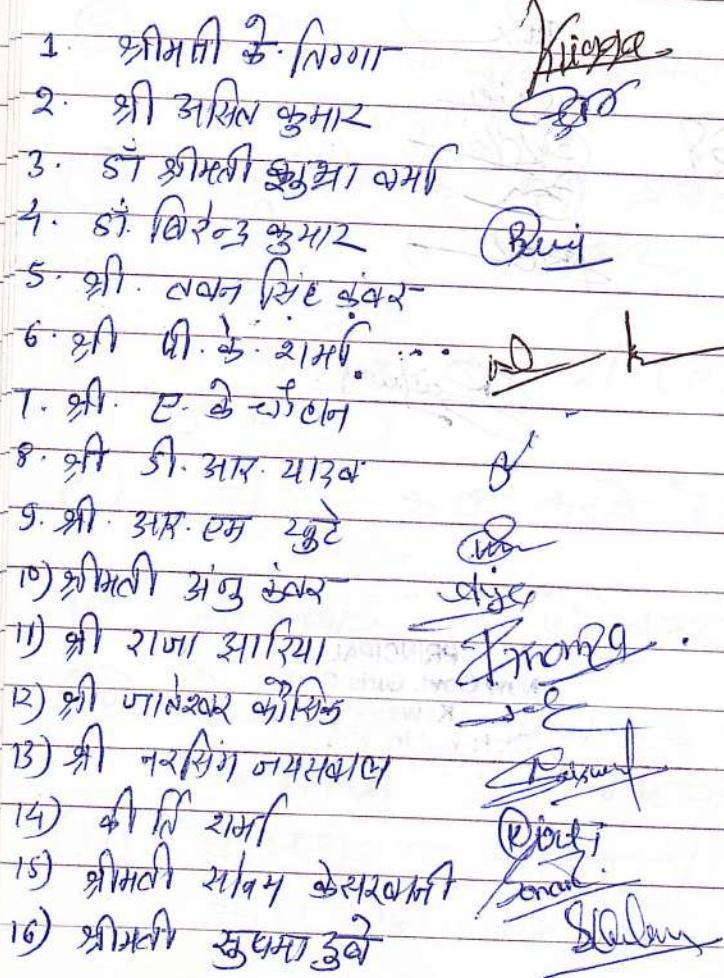 1. श्रीमती के. तिग्गा
2. श्री असित कुमार
3. डॉ श्रीमती शुभा वर्मा
4. डॉ. बिरेन्द्र कुमार
5. श्री. लखन सिंह कंवर
6. श्री पी. के. शर्मा
7. श्री. ए. के चौहान
8. श्री डी. आर. यादव
9. श्री. आर. एम खुटे
10) श्रीमती अंजु कंवर
11) श्री राजा आरिया
12) श्री कौशिक
13) श्री नरसिंग जयसवाल
14) कीर्ति शर्मा Kirti
15) श्रीमती सोनम केसरवानी Sonam
16) श्रीमती सुषमा दुबे
PRINCIPAL